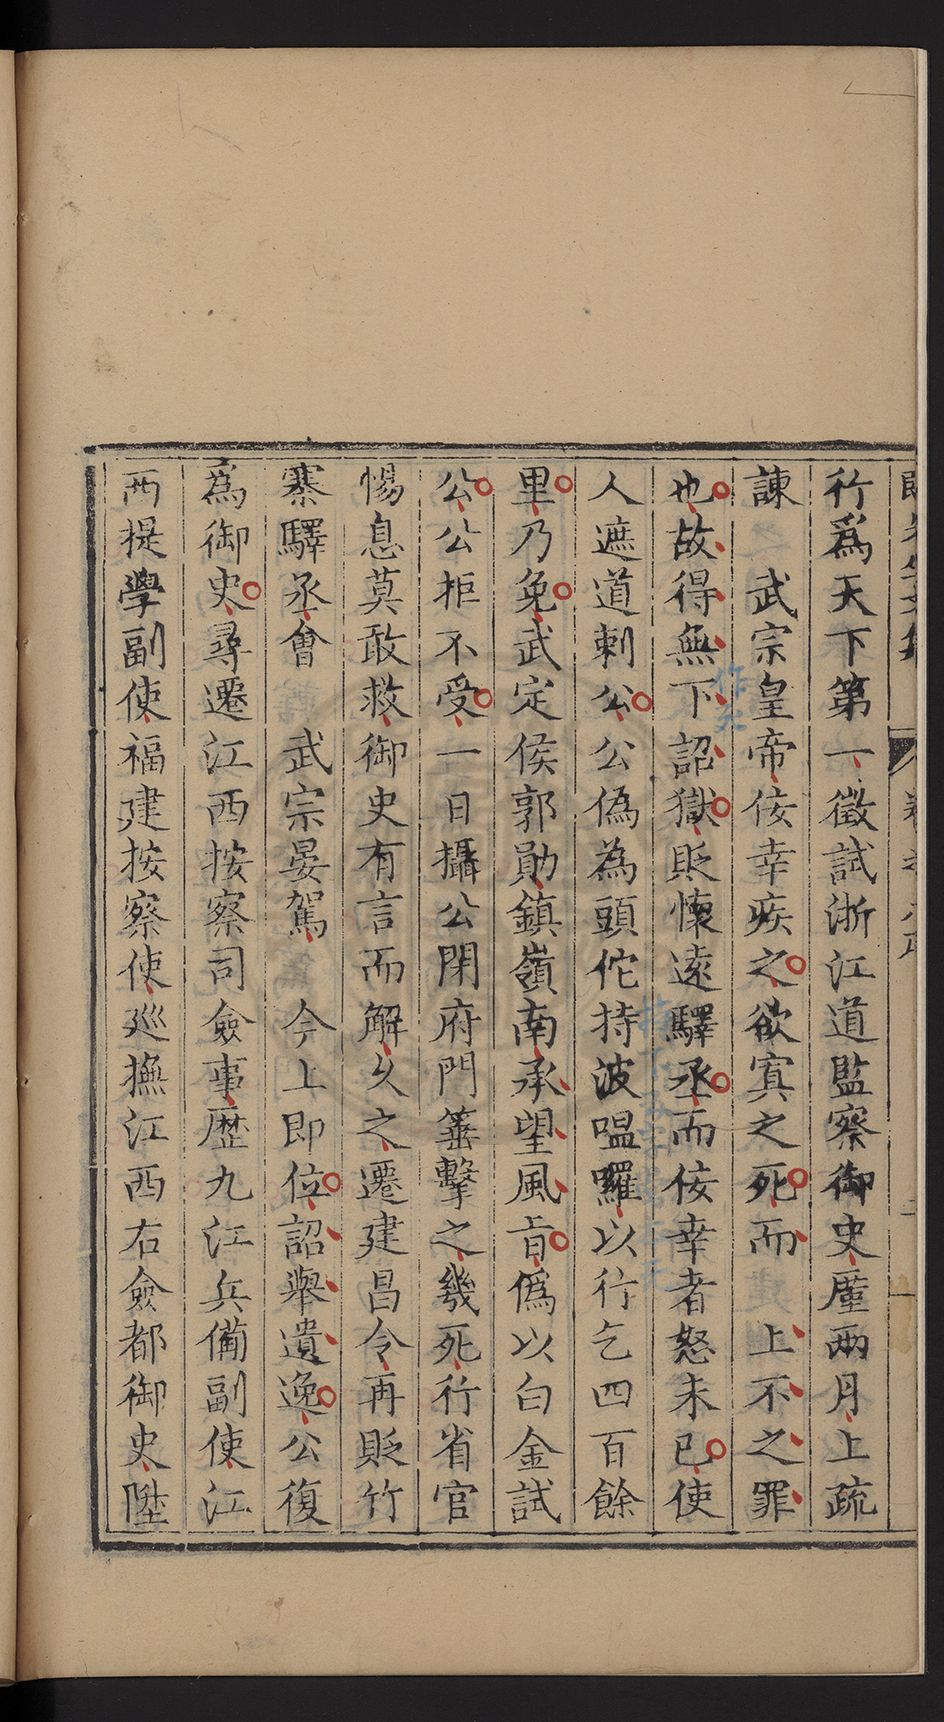 行爲天下第一徵試浙江道監察御史厪兩月上疏
諫　武宗皇帝佞幸疾之欲寘之死而　上不之罪
也故得無下詔獄貶懷遠驛丞而佞幸者怒未已使
人遮道刺公公偽為頭佗持波嗢囉以行乞四百餘
里乃免武定侯郭勛鎮嶺南承望風㫖偽以白金試
公公拒不受一日攝公閉府門箠擊之幾死行省官
惕息莫敢救御史有言而解乆之遷建昌令再貶竹
寨驛丞會　武宗晏駕　今上即位詔舉遺逸公復
為御史尋遷江西按察司僉事歷九江兵備副使江
西提學副使福建按察使廵撫江西右僉都御史陞